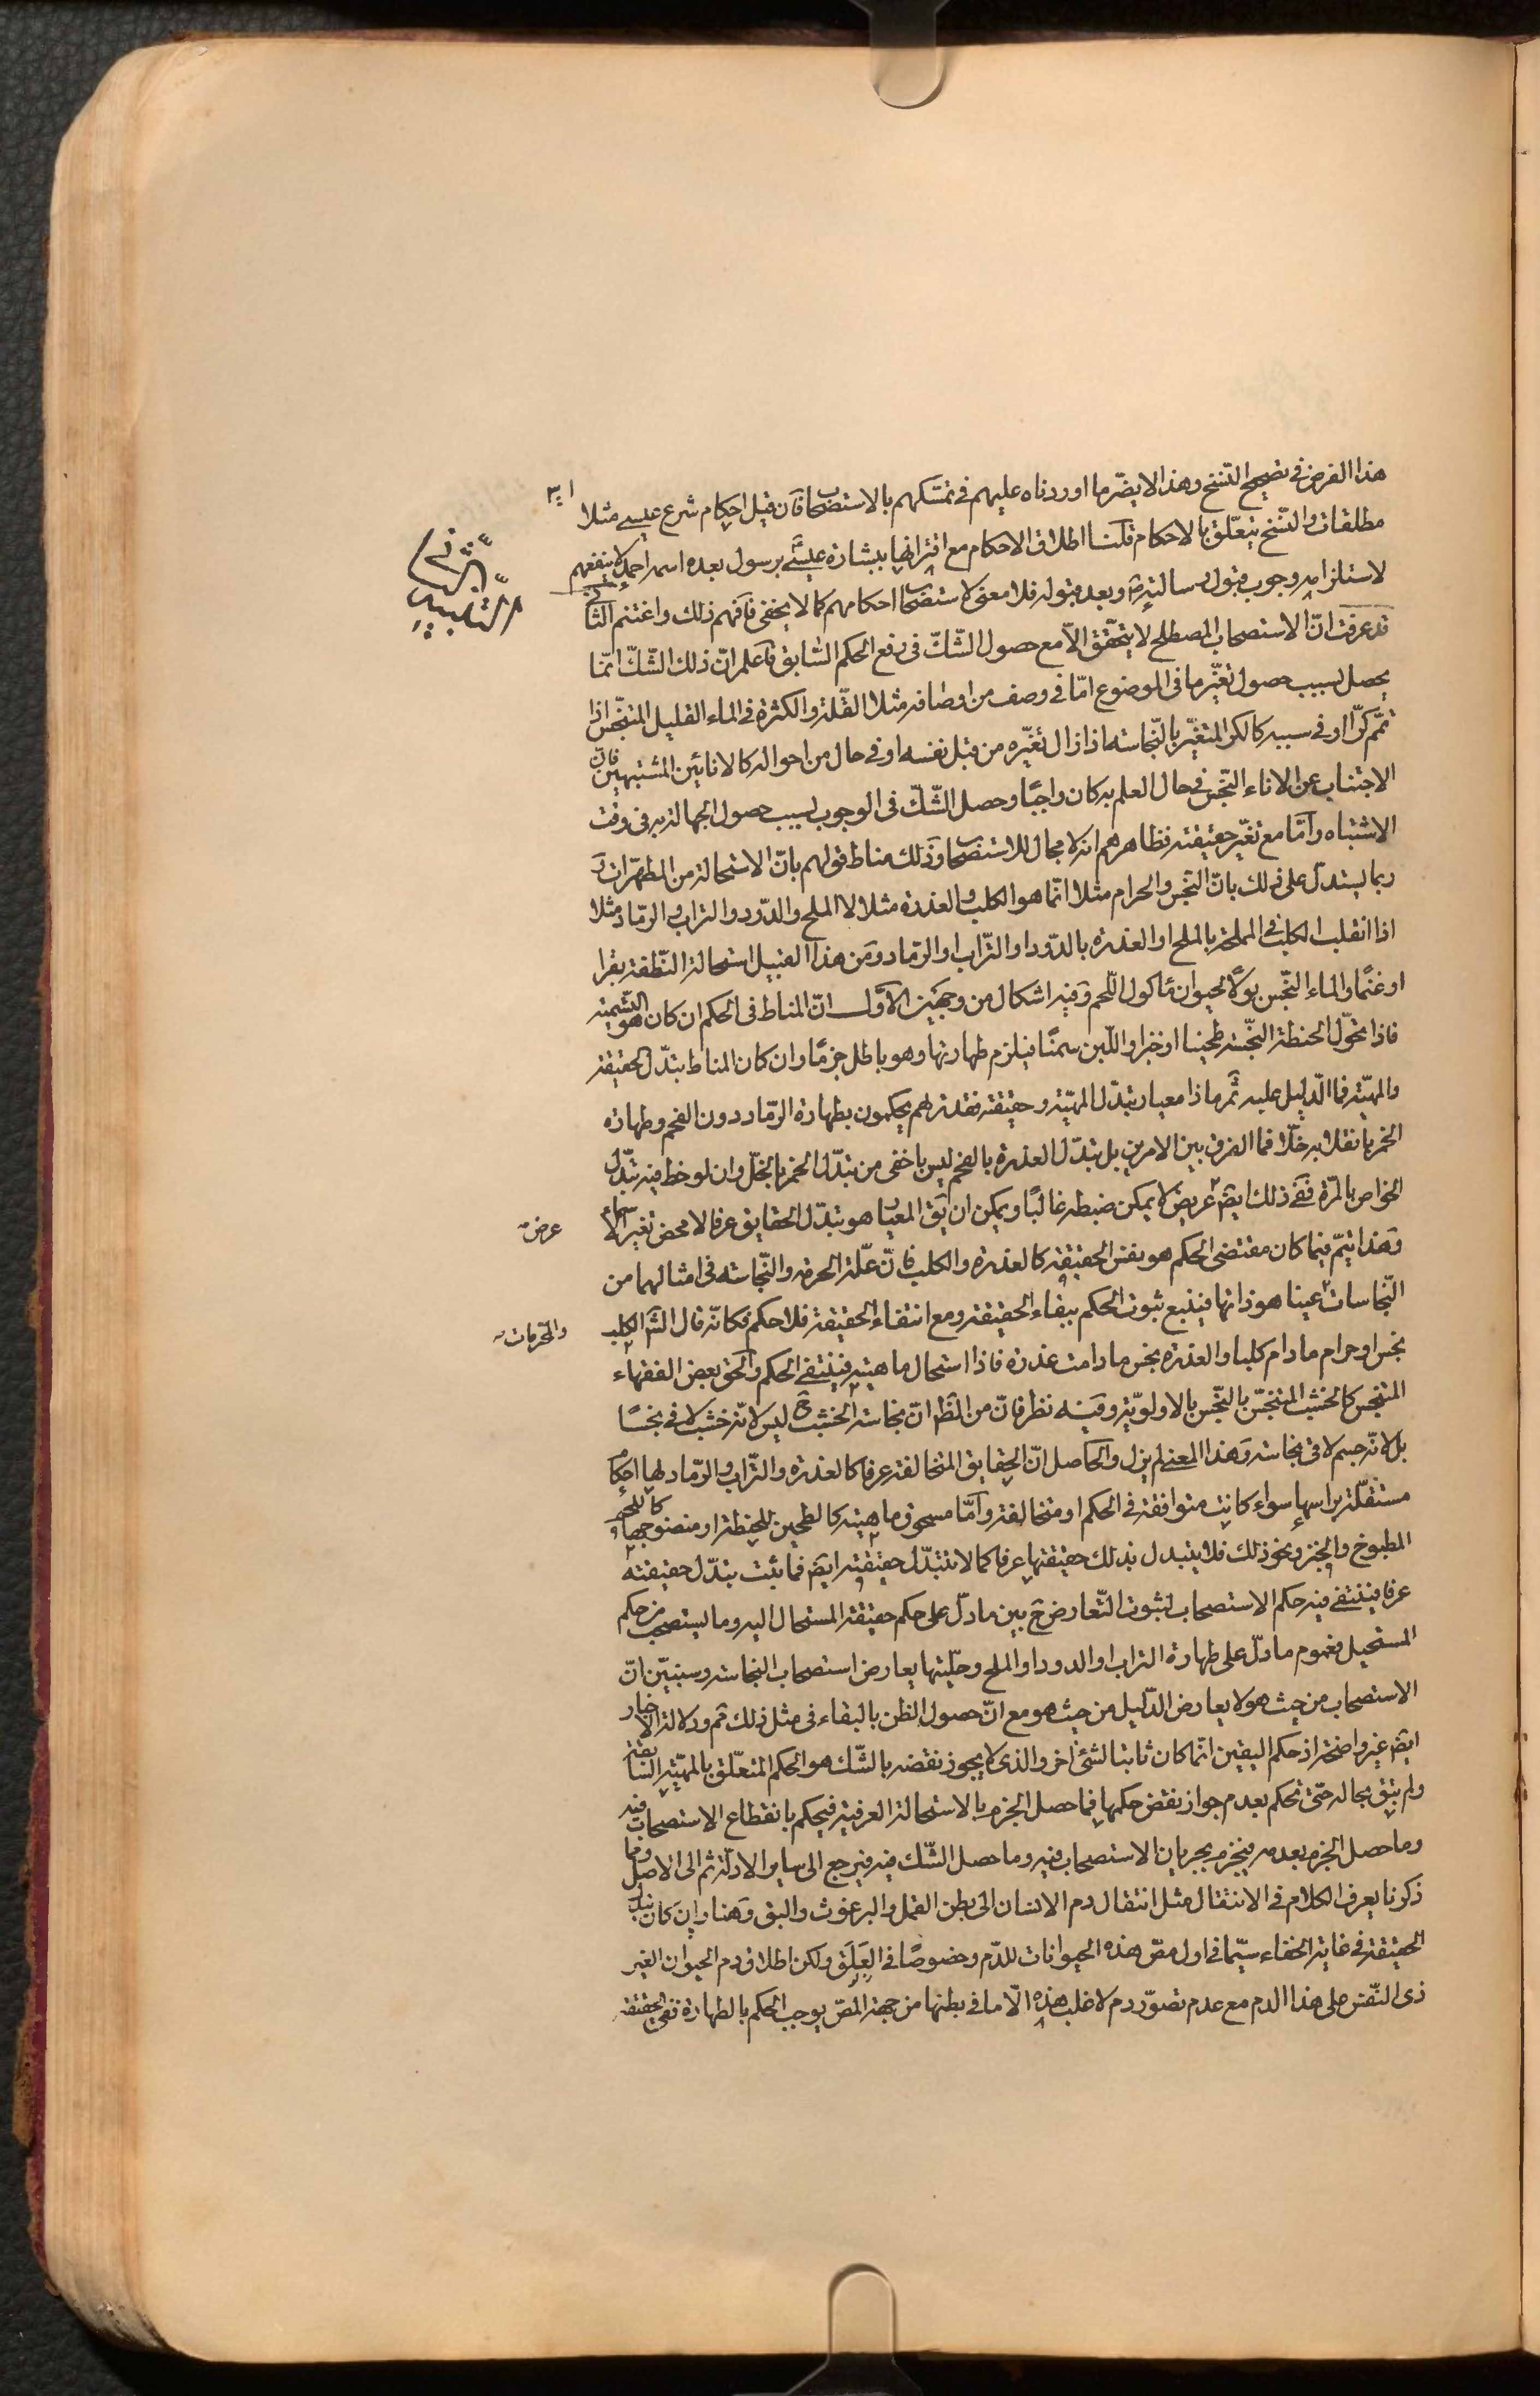 هذا الفرض فى تصحيح النسخ وهذا لا يضرّ ما اوردناه عليهم فى تمسّكهم بالاستصحاب فان قيل احكام شرع عيسى مثلا
مطلقات والنسخ يتعلّق بالاحكام قلنا اطلاق الاحكام مع اقترانها ببشارة عيسى برسول بعده اسمه احمد لا ينفعهم
لاستلزامه وجوب قبول رسالته وبعد قبوله فلا معنى لاستصحاب احكامهم كما لا يخفى فافهم ذلك واغتنم الثانى
التنبيه الثانى
قد عرفت انّ الاستصحاب المصطلح لا يتحقّق الّا مع حصول الشّكّ فى رفع الحكم السّابق فاعلم انّ ذلك الشّكّ انّما
يحصل بسبب حصول تغيّر ما فى الموضوع امّا فى وصف من اوصافه مثلا القلّة والكثرة فى الماء القليل المتنجّس اذا
تمّم كرّا او فى سببه كالكر المتغيّر بالنّجاسة اذا زال تغيّره من قبل نفسه او فى حال من احواله كالانائين المشتبهين فان
الاجتناب عن الاناء النّجس فى حال العلم به كان واجبًا وحصل الشّكّ فى الوجوب بسبب حصول الجهالة به فى وقت
الاشتباه وامّا مع تغيّر حقيقته فظاهرهم انه لا مجال للاستصحاب وذلك مناط قولهم بانّ الاستحالة من المطهّرات و
ربما يستدلّ على ذلك بانّ النّجس والحرام مثلا انّما هو الكلب والعذرة مثلا لا الملح والدّود والتراب والرماد مثلا
اذا انقلب الكلب فى المملحة بالملح او العذرة بالدّود او التّراب او الرّماد ومن هذا القبيل استحالة النّطفة بقرا
او غنمًا والماء النّجس بولًا لحيوان مأكول اللّحم وفيه اشكال من وجهين الاوّل انّ المناط فى الحكم ان كان هو التّسمية
فاذا تحوّل الحنطة النّجسة طحينا او خبزا واللّبن سمنًا فيلزم طهارتها وهو باطل جزمًا وان كان المناط تبدّل الحقيقة
والمهيّة فما الدّليل عليه ثمّ ما ذا معيار تبدّل المهيّة وحقيقته فقد تراهم يحكمون بطهارة الرّماد دون الفحم وطهارة
الخمر بانقلابه خلّا فما الفرق بين الامرين بل تبدّل العذرة بالفحم ليس باخفى من تبدّل الخمر بالخلّ وان لوحظ فيه تبدّل
الخواص بالمرّة ففى ذلك ايضا عرض عريض لا يمكن ضبطه غالبًا ويمكن ان يق المعيار هو تبدّل الحقايق عرفا لا محض تغير الاسماء
وهذا يتمّ فيما كان مقتضى الحكم هو نفس الحقيقة كالعذرة والكلب فانّ علّة الحرمة والنّجاسة فى امثالهما من
النّجاسات والمحرمات عينا هو ذاتها فيتبع ثبوت الحكم ببقاء الحقيقة ومع انتفاء الحقيقة فلا حكم فكانّه قال الش الكلب
نجس او حرام ما دام كلبا والعذرة نجس ما دامت عذرة فاذا استحال ماهيته فينتفى الحكم والحق بعض الفقهاء
المتنجس كالخشب المتنجّس بالنّجس بالاولويّة وفيه نظر فانّ من الظّ انّ نجاسة الخشب ح ليس لانّه خشب لاقى نجسًا
بل لانّه جسم لاقى نجاسة وهذا المعنى لم يزل والحاصل انّ الحقايق المتخالفة عرفا كالعذرة والتّراب والرّماد لها احكام
مستقلّة براسها سواء كانت متوافقة فى الحكم او متخالفة وامّا مسحوق ماهيته كالطحين للحنطة او منضوجها كاللحم
المطبوخ والخبز ونحو ذلك فلا يتبدل بذلك حقيقتها عرفا كما لا تتبدّل حقيقته ايضا فما ثبت تبدّل حقيقته
عرفا فينتفى فيه حكم الاستصحاب لثبوت التّعارض ح بين ما دلّ على حكم حقيقة المستحال اليه وما يستصحب من حكم
المستحيل فعموم ما دلّ على طهارة التراب او الدود او الملح وحلّيتها يعارض استصحاب النجاسة وسنبيّن انّ
الاستصحاب من حيث هو لا يعارض الدّليل من حيث هو مع انّ حصول الظن بالبقاء فى مثل ذلك ثم ودلالة الاخبار
ايضا غير واضحة اذ حكم اليقين انّما كان ثابتا لشئ اخر والذى لا يجوز نقضه بالشّك هو الحكم المتعلّق بالمهيّة السّابقة
ولم يبق بحاله حتّى تحكم بعدم جواز نقض حكمها فما حصل الجزم بالاستحالة العرفية فيحكم بانقطاع الاستصحاب فيه
وما حصل الجزم بعدمه فيجزم بجريان الاستصحاب فيه وما حصل الشّك فيه فيرجع الى ساير الادلّة ثم الى الاصل وبما
ذكرنا يعرف الكلام فى الانتقال مثل انتقال دم الانسان الى بطن القمل والبرغوث والبق وهنا وان كان تبدّل
الحقيقة فى غاية الخفاء سيّما فى اول مصّ هذه الحيوانات للدّم وخصوصًا فى العلق ولكن اطلاق دم الحيوان الغير
ذى النّفس على هذا الدم مع عدم تصوّر دم لاغلب هذه الّا ما فى بطنها من جهة المصّ يوجب الحكم بالطهارة ففى الحقيقة